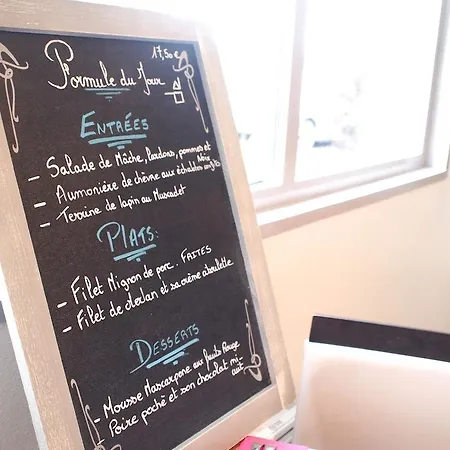 Formule du Jour 17,50€
ENTRÉES
- Salade de Mâche, lardons, pommes et Noix
- Aumonière de chèvre aux échalotes confites
- Terrine de lapin au Muscadet
PLATS:
- Filet Mignon de porc. FRITES
- Filet de Merlan et sa crème ciboulette
DESSERTS
- Mousse Mascarpone aux fruits Rouge
- Poire poché et son chocolat mi-